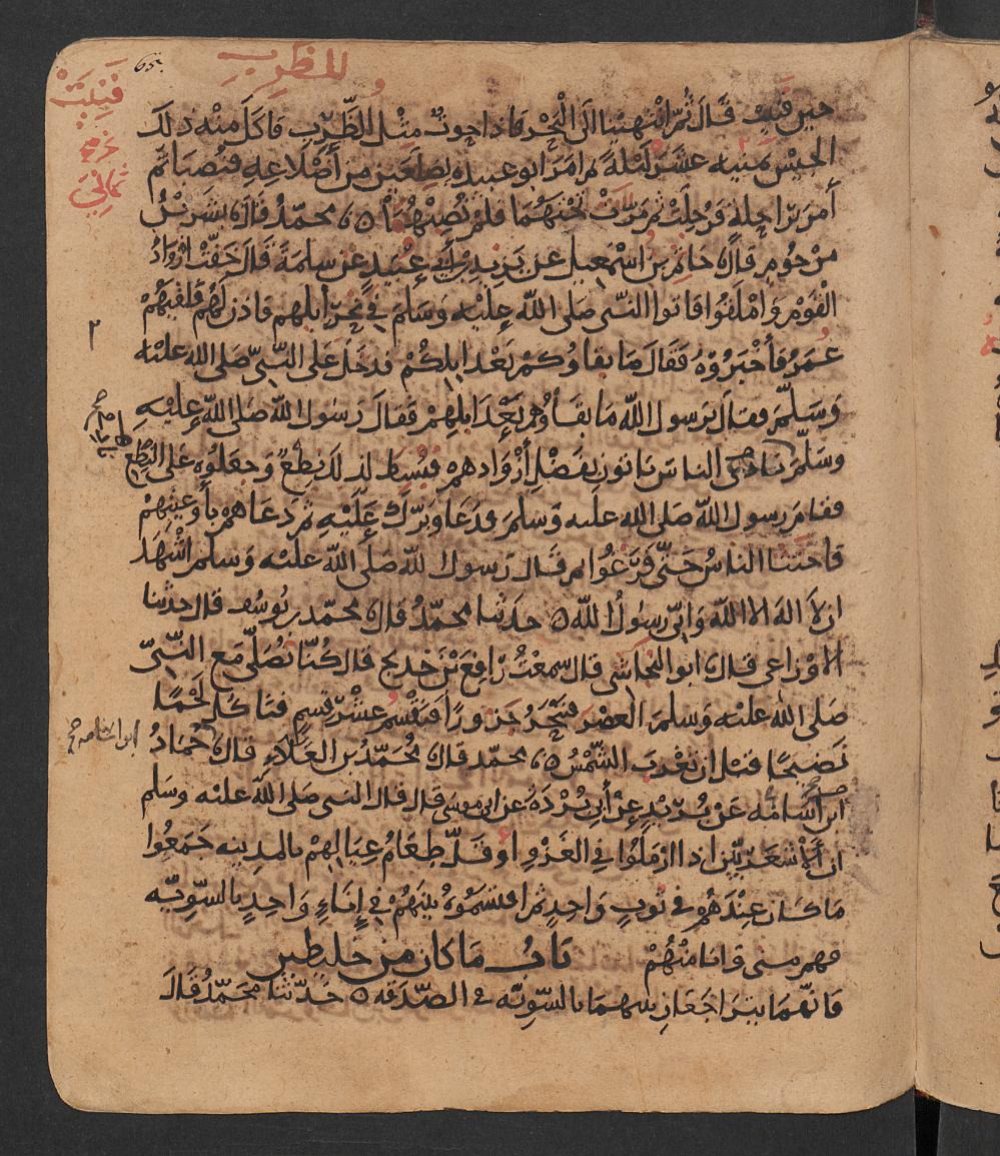 للظرب
65.
فنيت
ثماني
حين فنيت قال ثم انتهينا الى البحر فاذا حوت مثل الظرب فاكل منه ذلك
الجيش ثمنيه عشر ليلة ثم امر ابو عبيده بضلعين من أضلاعه فنصبا ثم
أمر براحلة فرحلت ثم مرت تحتهما فلم تصبهما ه محمد قال بشر بن
مرحوم قال حاتم بن اسمعيل عن يزيد بن أبي عبيد عن سلمة قال خفت ازواد
القوم وامْلقوا فاتوا النبي صلى الله عليه وسلم في نحر ابلهم فاذن لهم فلقيهم
عمر فأخبروه فقال ما بقاوكم بعد ابلكم فدخل على النبي صلى الله عليه
وسلم فقال يرسول الله ما بقاوهم بعد ابلهم فقال رسول الله صلى الله عليه
وسلم ناد في الناس ياتون بفضل أزوادهم فبسط لذلك نطع وجعلوه على النطع
فقام رسول الله صلى الله عليه وسلم فدعا وبرك عليه ثم دعاهم بأوعيتهم
فاحتثا الناس حتى فرغوا ثم قال رسول الله صلى الله عليه وسلم اشهد
ان لا اله الا الله واني رسول الله ه حدثنا محمد قال محمد بن يوسف قال حدثنا
الاوزاعي قال ابو النجاشي قال سمعت رافع بن خديج قال كنا نصلي مع النبي
صلى الله عليه وسلم العصر فننحر جزورا فتقسم عشر قسم فنا كل لحما
نضيجا قبل ان تغرب الشمس ه محمد قال محمد بن العلاء قال حماد
ابن اسامه عن بريد عن أبي بردة عن ابي موسى قال قال النبي صلى الله عليه وسلم
ان الاشعريين اذا ارملوا في الغزو او قل طعام عيالهم بالمدينه جمعوا
ما كان عندهم في ثوب واحد ثم اقتسموه بينهم في إناء واحد بالسويه
فهم مني وانا منهم باب ما كان من خليطين
فانهما يتراجعان بينهما بالسويه في الصدقه ه حدثنا محمد قال